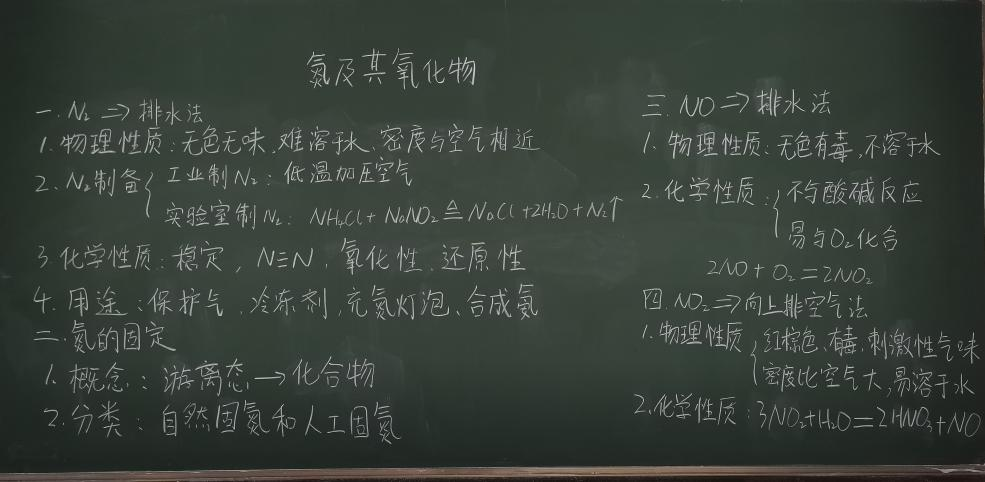 氮及其氧化物
一. N₂ ⇒ 排水法
1. 物理性质：无色无味、难溶于水、密度与空气相近
2. N₂制备{ 工业制N₂：低温加压空气
实验室制N₂：NH₄Cl+NaNO₂≜NaCl+2H₂O+N₂↑
3. 化学性质：稳定，N≡N，氧化性、还原性
4. 用途：保护气、冷冻剂，充氮灯泡、合成氨
二. 氮的固定
1. 概念：游离态→化合物
2. 分类：自然固氮和人工固氮
三. NO ⇒ 排水法
1. 物理性质：无色有毒，不溶于水
2. 化学性质：{ 不与酸碱反应
易与O₂化合
2NO+O₂=2NO₂
四. NO₂⇒向上排空气法
1. 物理性质{ 红棕色、有毒、刺激性气味
密度比空气大，易溶于水
2. 化学性质：3NO₂+H₂O=2HNO₃+NO